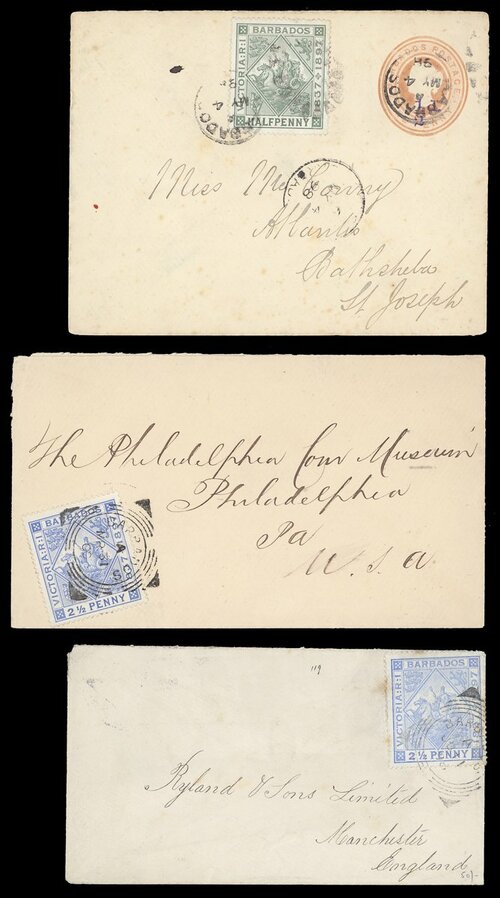 BARBADOS
VICTORIA·R·I
1837 1897
HALFPENNY
MY 4
MY 4
98
Miss Mc
Atlantis
Bathsheba
St Joseph
The Philadelphia Com Museum
Philadelphia
Pa
U. S. A.
BARBADOS
VICTORIA·R·I
2½ PENNY
119
BARBADOS
VICTORIA·R·I
1897
2½ PENNY
Ryland & Sons Limited
Manchester
England
50/-